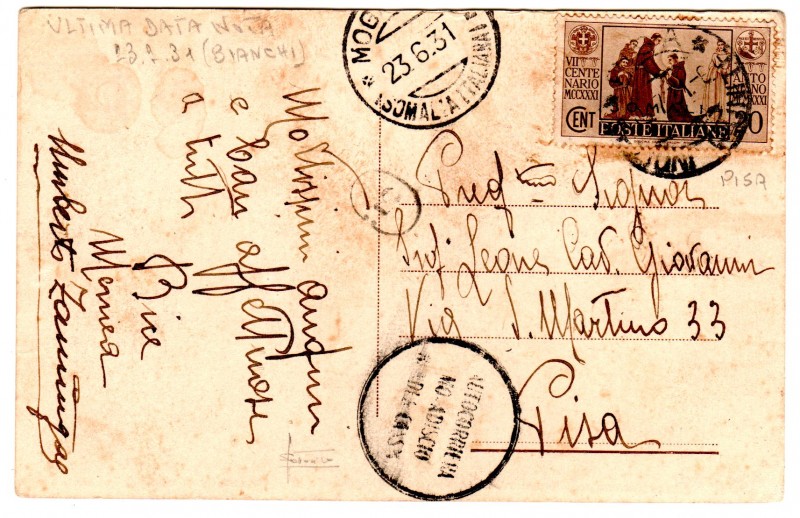 ULTIMA DATA NOTA
23.2.31 (BIANCHI)
MOG
23.6.31
(SOMALIA ITALIANA)
VII
CENTE
NARIO
MCCXXXI
ANTO
MCMXXXI
CENT 20
POSTE ITALIANE
PISA
Moltissimi auguri
e cari affettuosi
a tutti
Bice
Umberto
Preg mo Signor
Prof. Leone Cav. Giovanni
Via S. Martino 33
Pisa
AUTOCORRIERA
MOGADISCIO